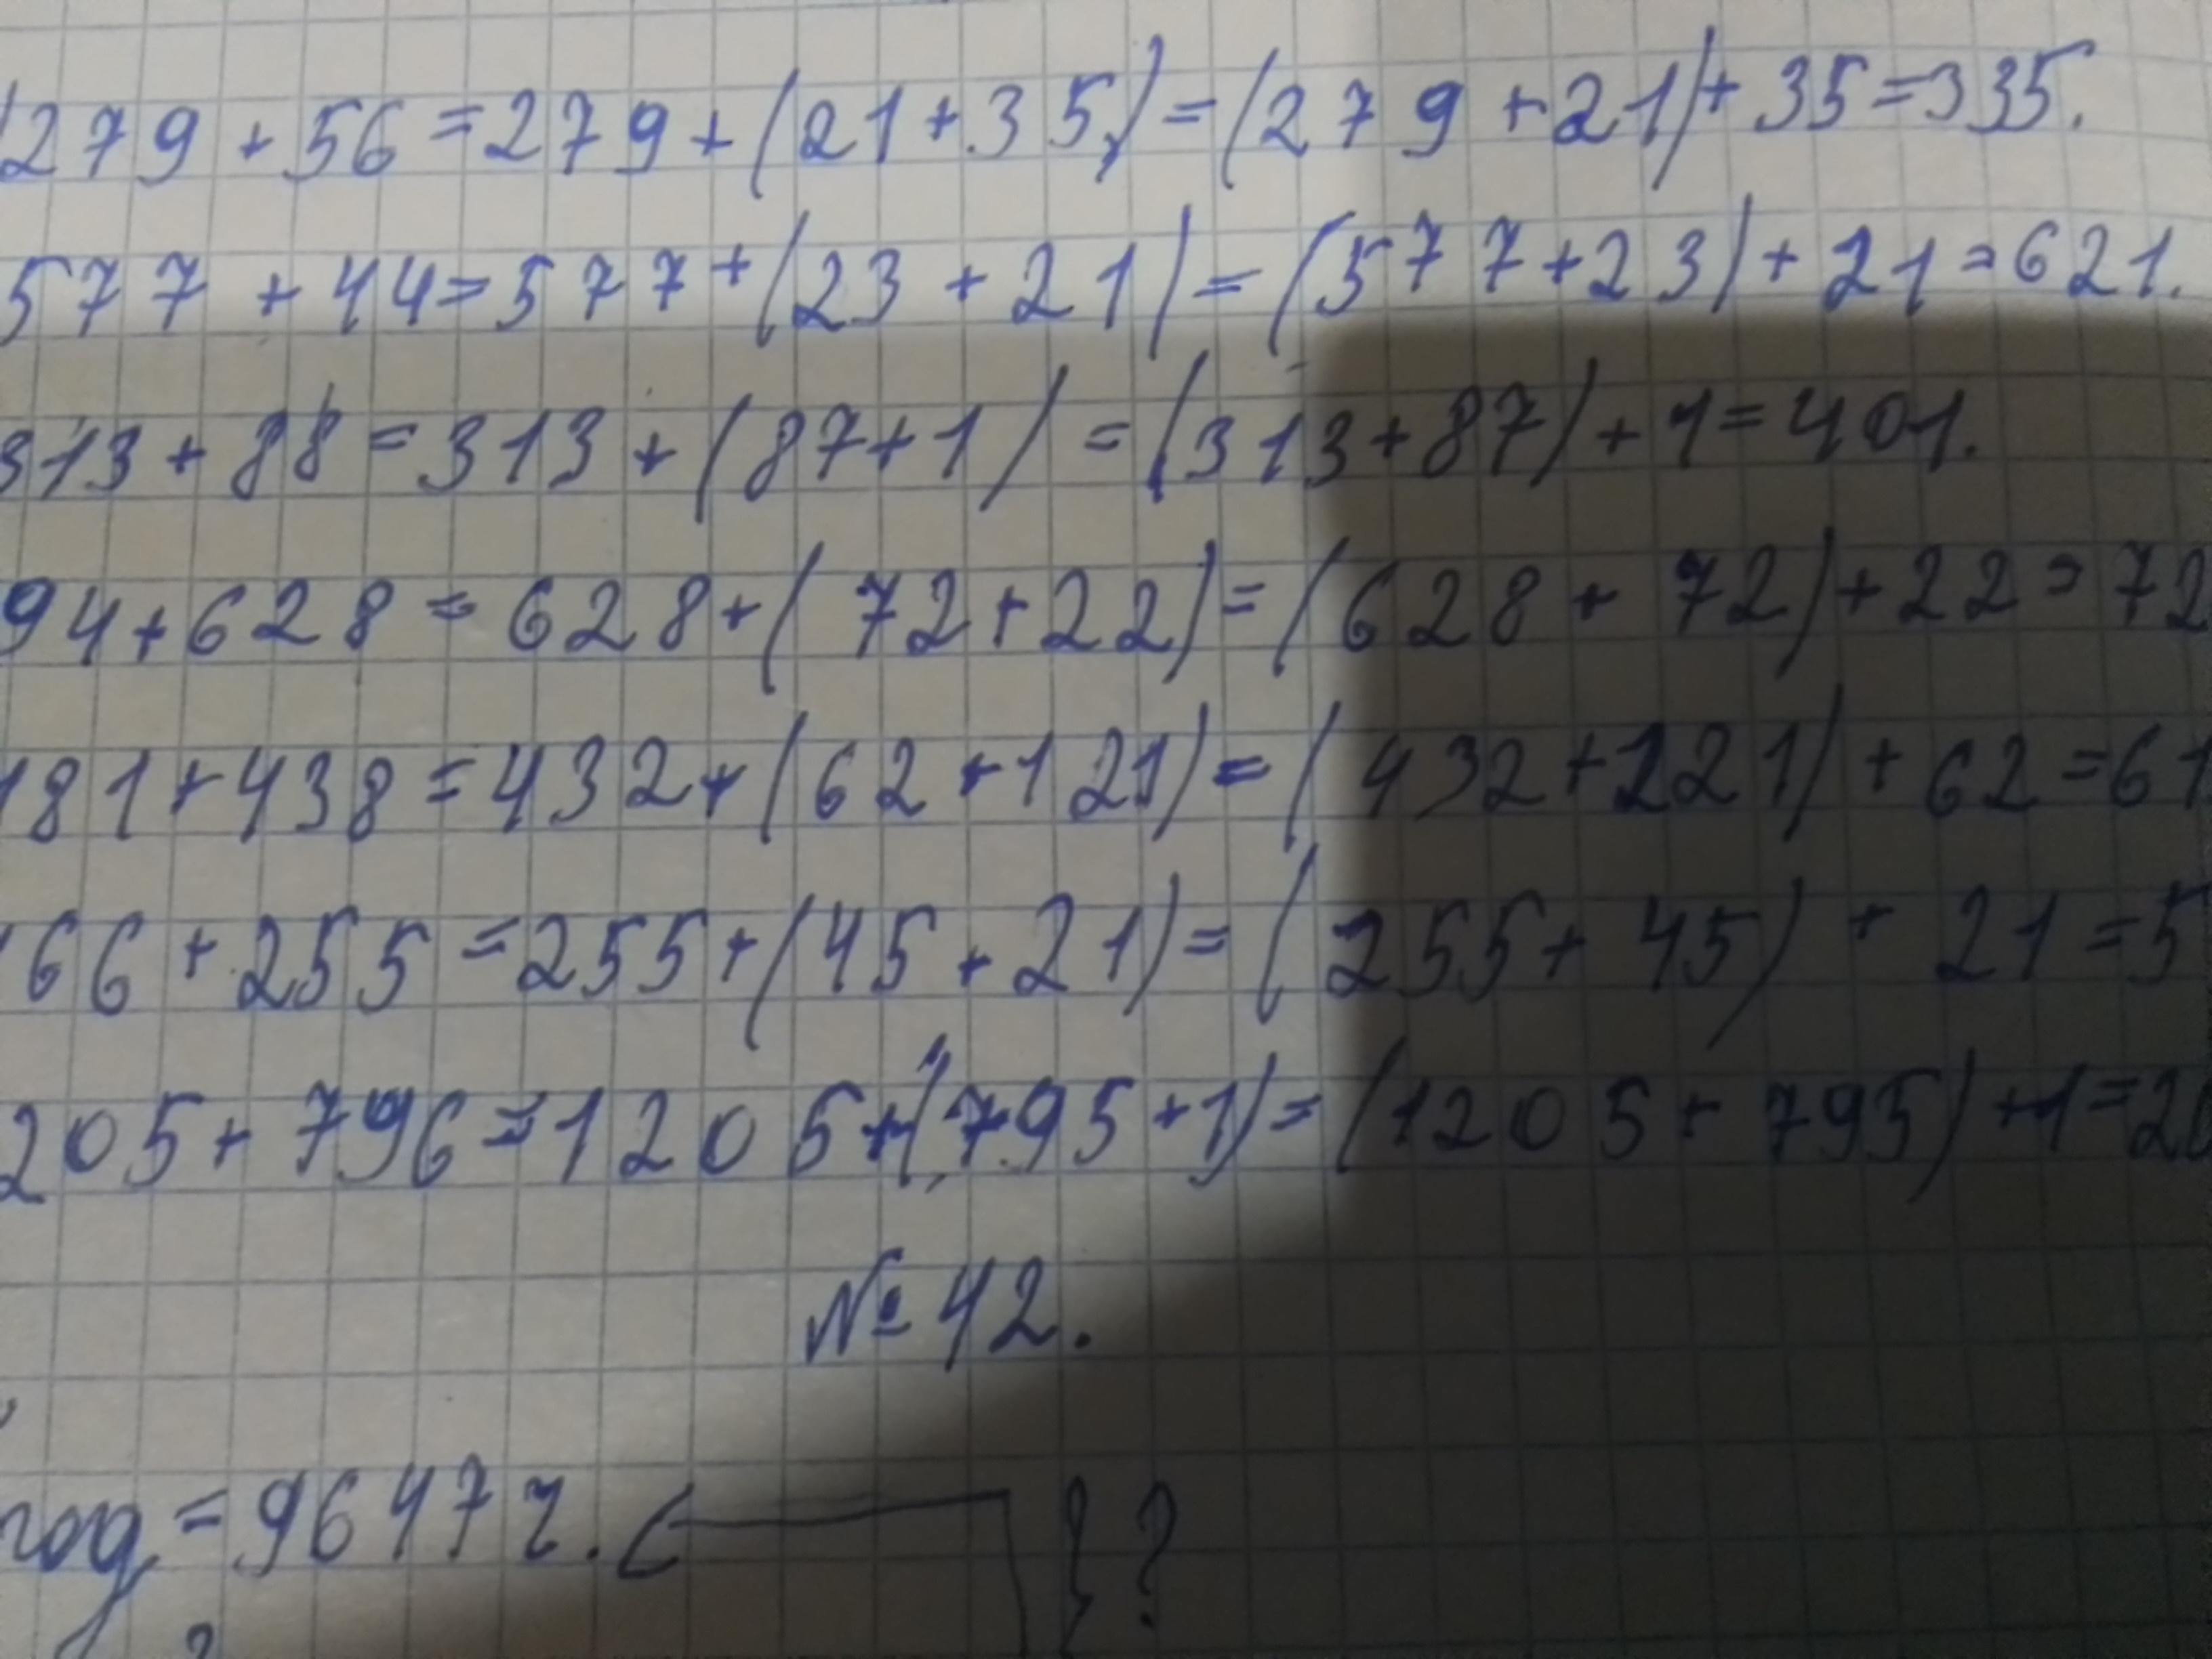 279+56=279+(21+35)=(279+21)+35=335.
577+44=577+(23+21)=(577+23)+21=621.
313+88=313+(87+1)=(313+87)+1=401.
94+628=628+(72+22)=(628+72)+22=72
181+438=432+(62+121)=(432+121)+62=61
166+255=255+(45+21)=(255+45)+21=5
205+796=1205+(795+1)=(1205+795)+1=20
№42.
год=96472.
}?
?